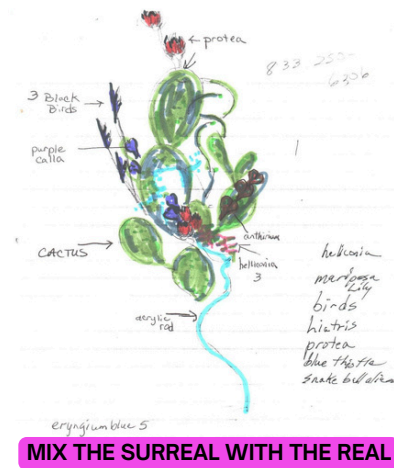 protea
833-250-
6306
3 Black
Birds
purple
calla
CACTUS
anthirium
heliconia
3
acrylic
rod
heliconia
mariposa
Lily
birds
liatris
protea
blue thistle
snake
eryngium blue 5
MIX THE SURREAL WITH THE REAL